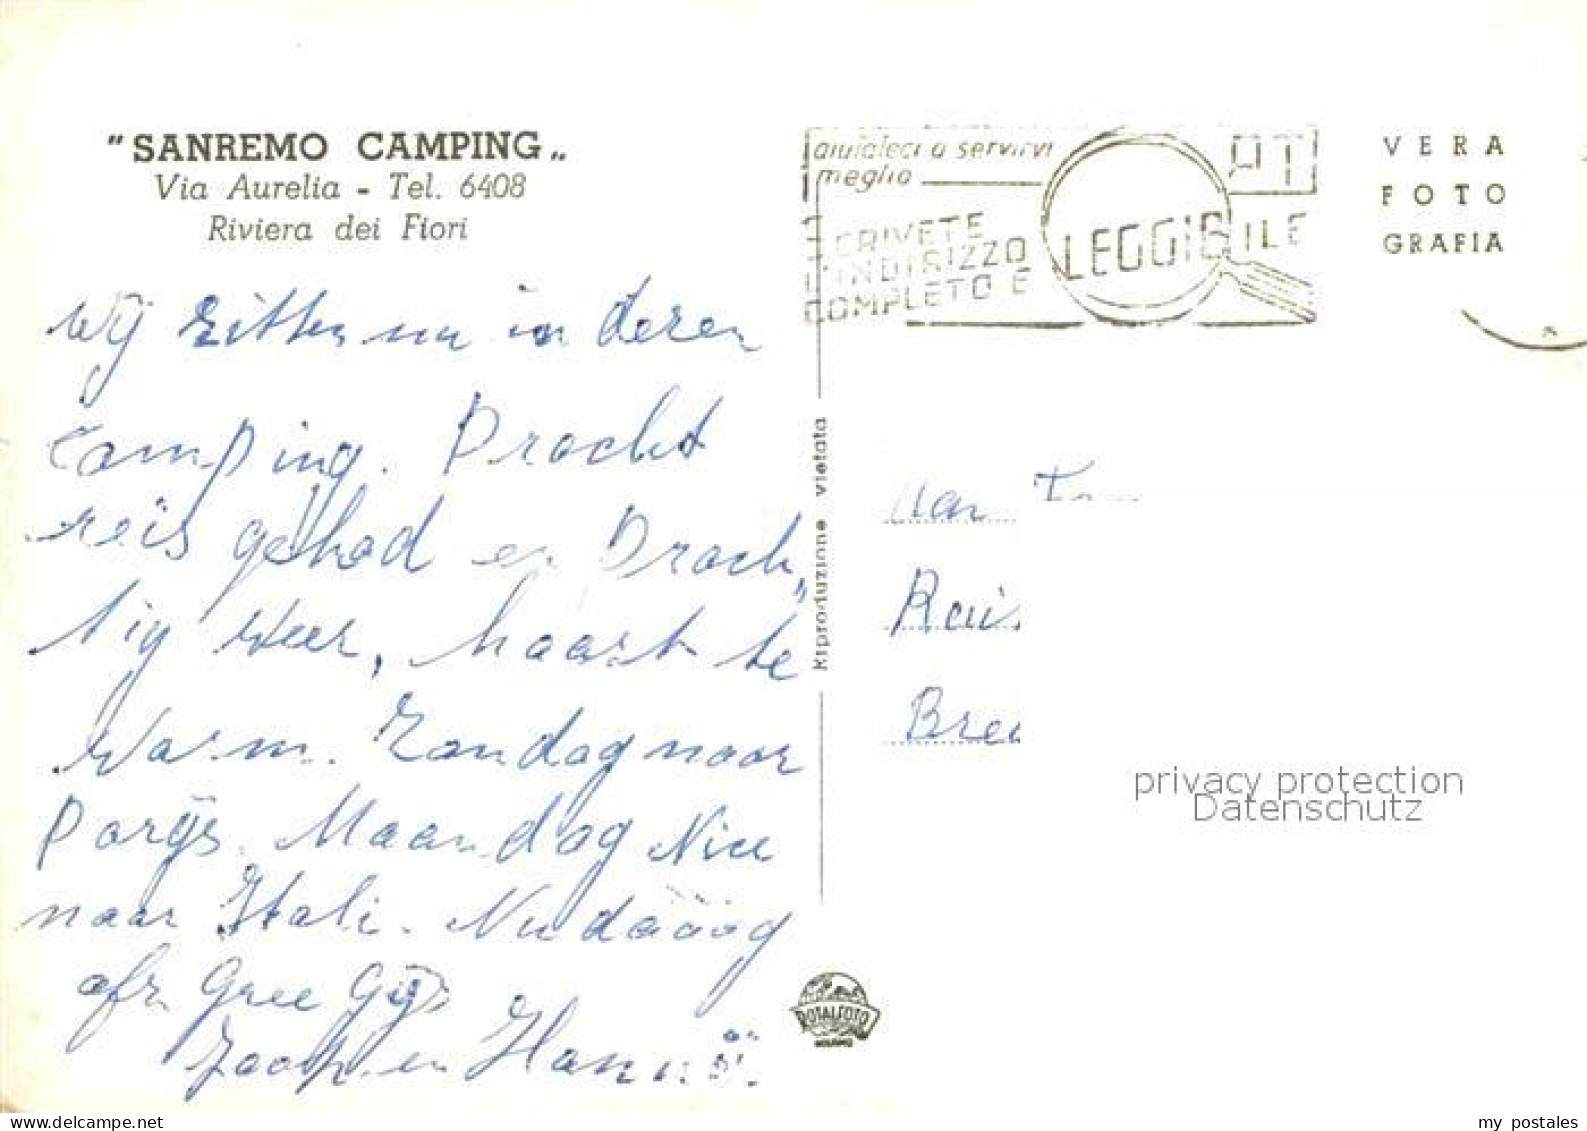 "SANREMO CAMPING„
Via Aurelia - Tel. 6408
Riviera dei Fiori
Wij zitten nu in deze
camping. Pracht
reis gehad en Prach„
tig weer, haast te
Warm. Zondag naar
Parijs. Maandag Nice
naar Itali. Nu dääääg
afz. Gree Gijs
Jaap en Hann
aiutateci a servirvi
meglio
PT
SCRIVETE
L'INDIRIZZO
COMPLETO E LEGGIBILE
VERA
FOTO
GRAFIA
Riproduzione vietata
Aan Fam
privacy protection
Datenschutz
ROTALFOTO
MILANO
delcampe.net
my postales